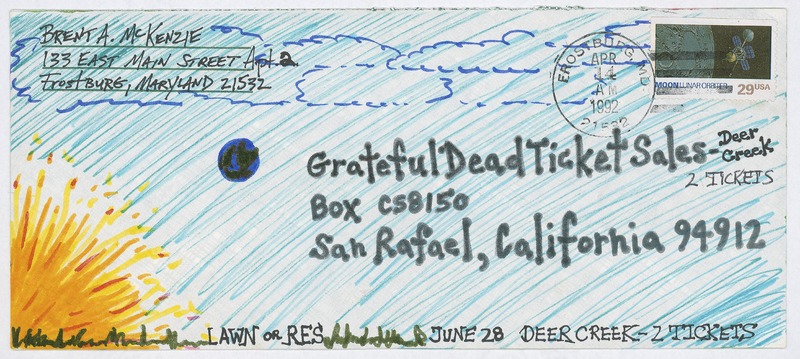 BRENT A. McKENZIE
133 EAST MAIN STREET Apt. 2
FROSTBURG, MARYLAND 21532
FROSTBURG, MD
APR
14
AM
1992
21532
MOON LUNAR ORBITER
29USA
Grateful Dead Ticket Sales - Deer Creek
2 TICKETS
Box CS8150
San Rafael, California 94912
LAWN OR RES JUNE 28 DEER CREEK - 2 TICKETS